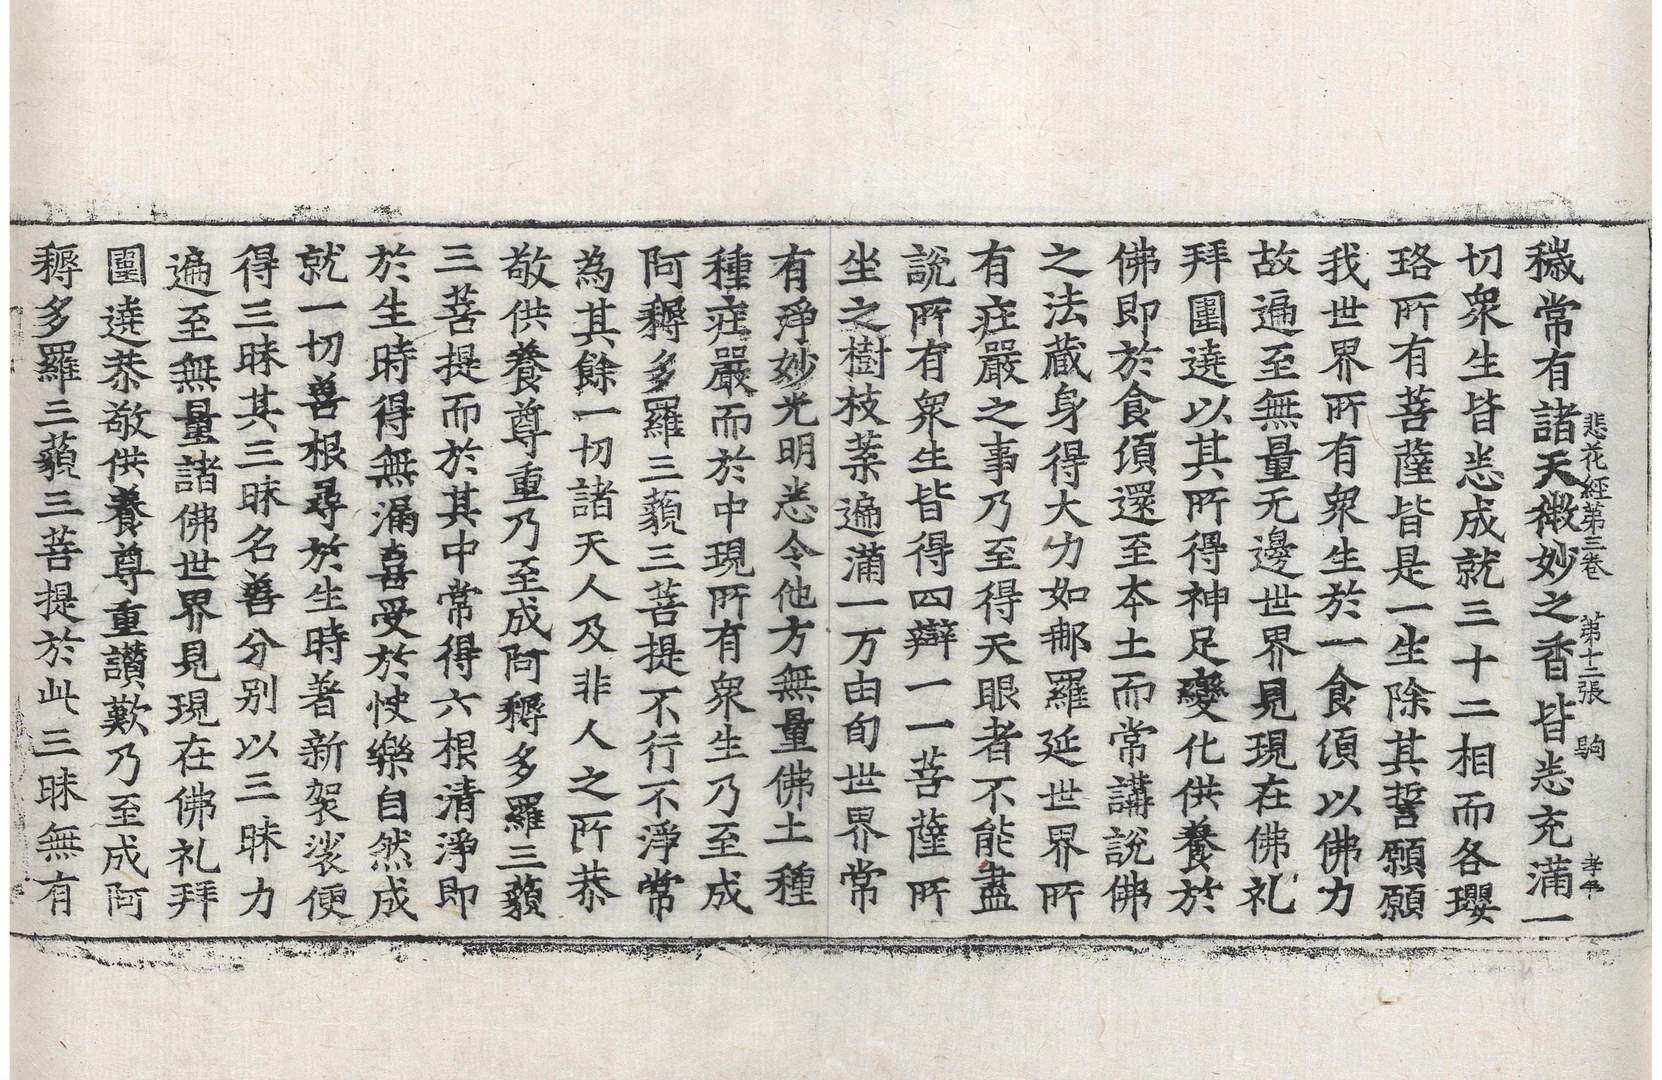 悲花経第三卷　第十二張　駒
穢常有諸天微妙之香皆悉充滿一
切衆生皆悉成就三十二相而各瓔
珞所有菩薩皆是一生除其誓願願
我世界所有衆生於一食湏以佛力
故遍至無量无邊世界見現在佛礼
拜圍遶以其所得神足變化供養於
佛即於食湏還至本土而常講說佛
之法蔵身得大力如郍羅延世界所
有庄嚴之事乃至得天眼者不能盡
說所有衆生皆得四辯一一菩薩所
坐之樹枝葉遍滿一万由旬世界常
有淨妙光明悉令他方無量佛土種
種庄嚴而於中現所有衆生乃至成
阿耨多羅三藐三菩提不行不淨常
為其餘一切諸天人及非人之所恭
敬供養尊重乃至成阿耨多羅三藐
三菩提而於其中常得六根清淨即
於生時得無漏喜受於快樂自然成
就一切善根尋於生時著新袈裟便
得三昧其三昧名善分别以三昧力
遍至無量諸佛世界見現在佛礼拜
圍遶恭敬供養尊重讃歎乃至成阿
耨多羅三藐三菩提於此三昧無有